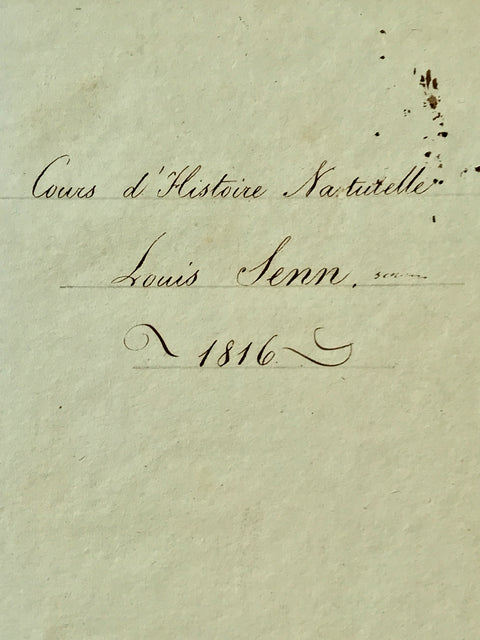 Cours d'Histoire Naturelle
Louis Senn.
1816